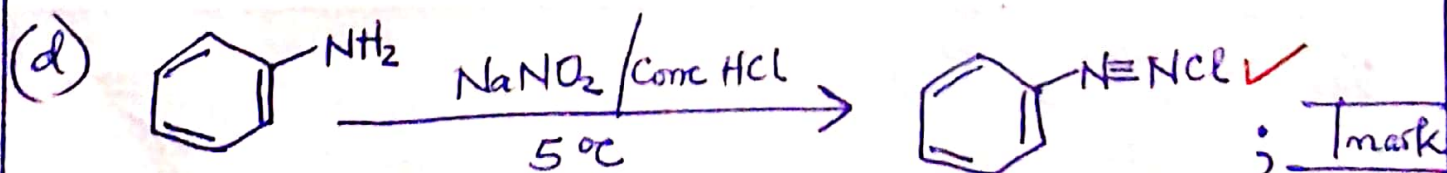 (d) NH₂ NaNO₂/Conc HCl N≡NCl ✓
5℃ ; 1mark